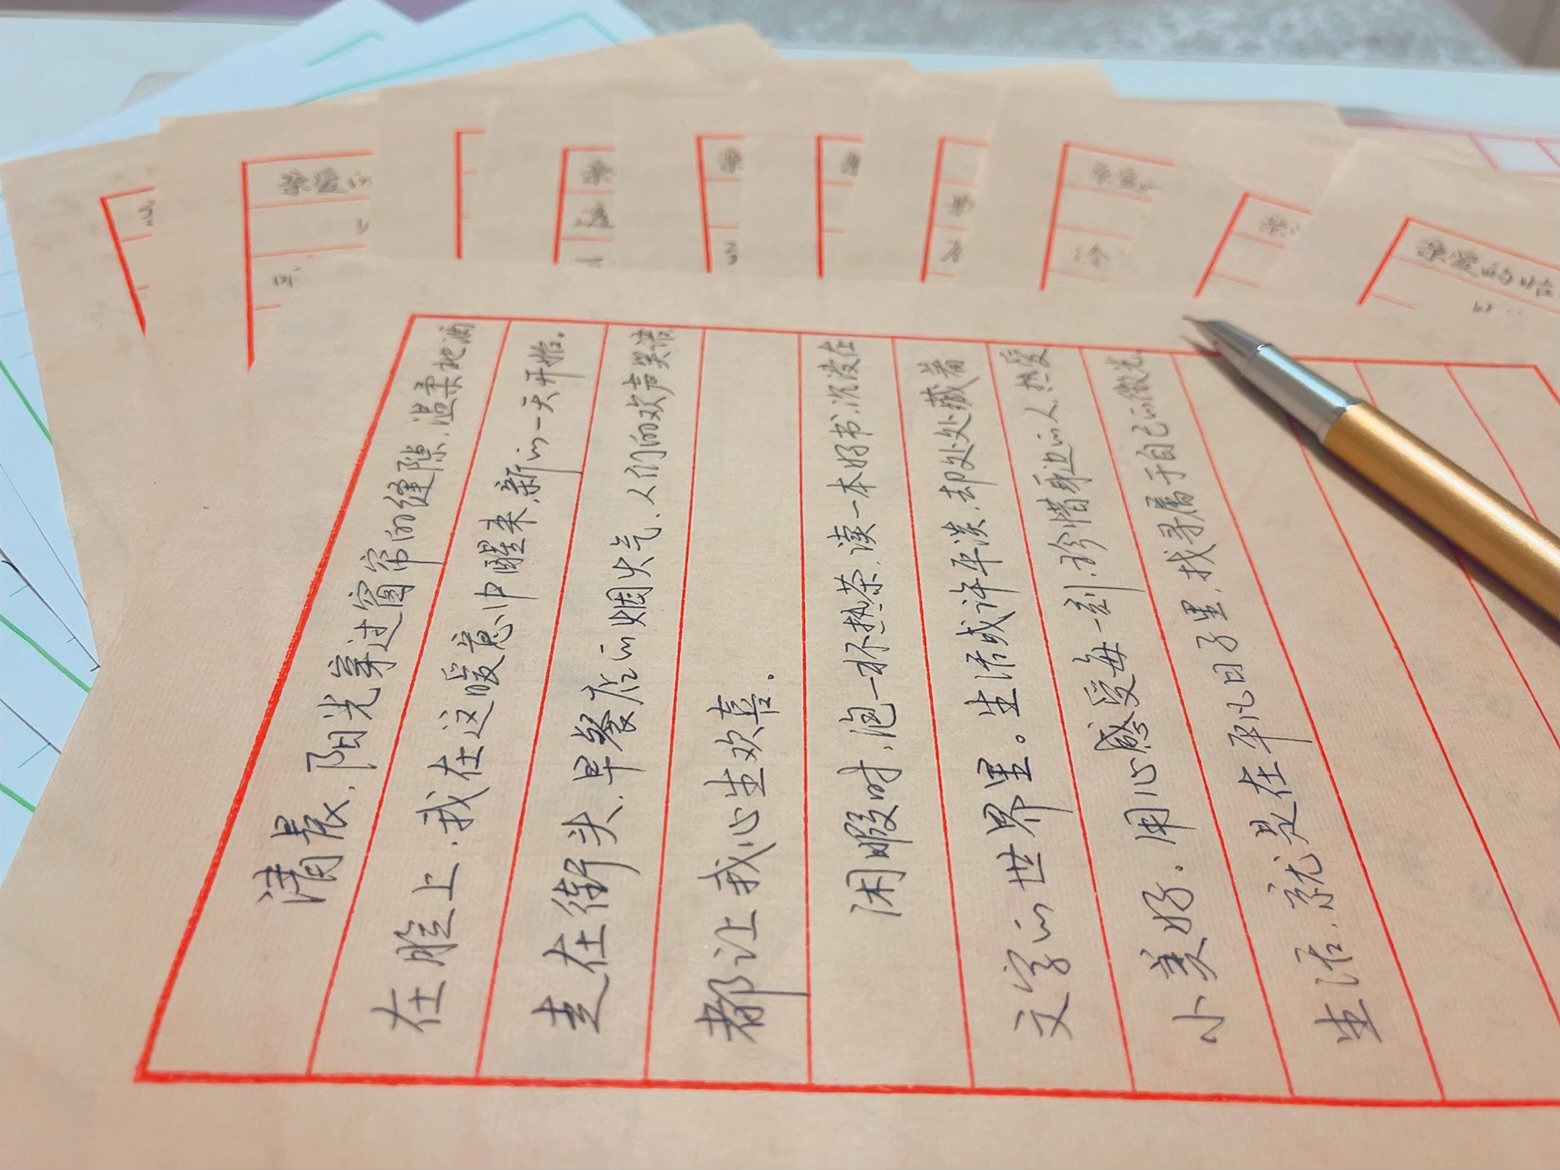 清晨，阳光穿过窗帘的缝隙，温柔地洒
在脸上，我在这暖意中醒来，新的一天开始。
走在街头，早餐店的烟火气、人们的欢声笑语
都让我心生欢喜。
闲暇时，泡一杯热茶，读一本好书，沉浸在
文字的世界里。生活或许平淡，却处处藏着
小美好。用心感受每一刻，珍惜身边的人，热爱
生活，就是在平凡日子里，找寻属于自己的微光。
亲爱的
亲爱的